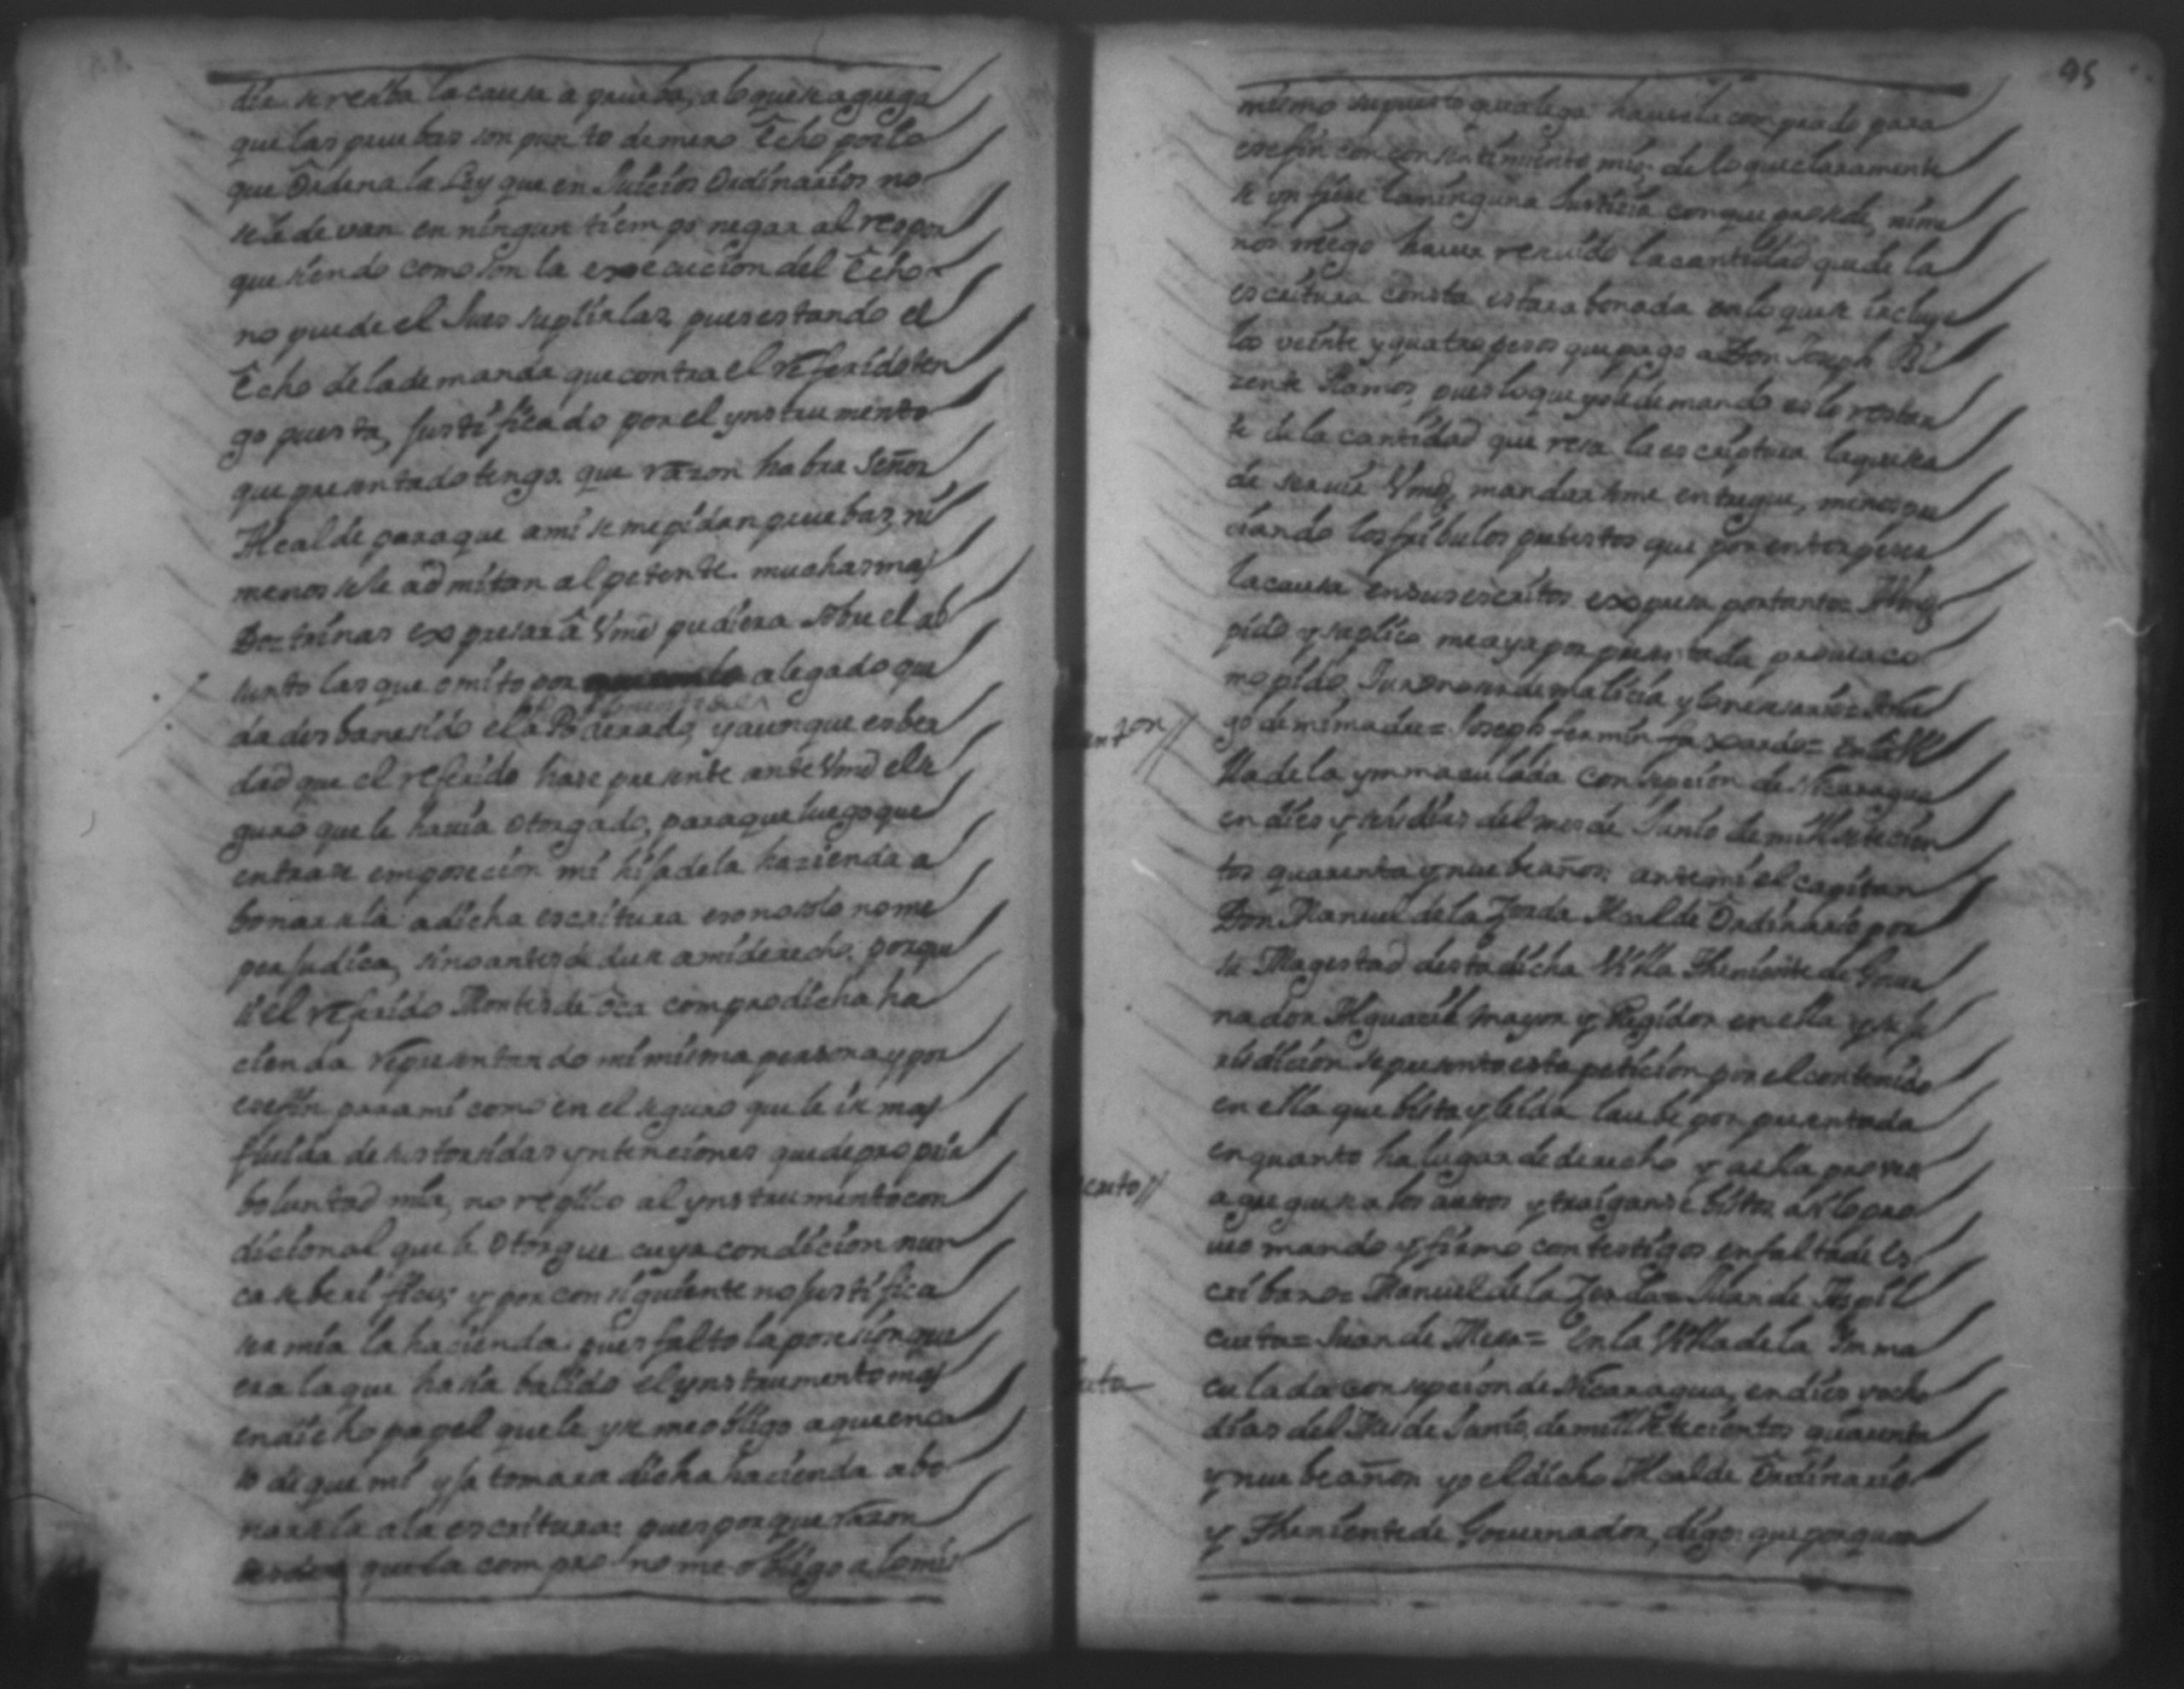 dia se resiba la causa a prueba, a lo que se agrega
que las pruebas son punto de mero Echo por lo
que Ordena la Ley que en Juicios Ordinarios no
se le devan en ningun tiempo negar al
que siendo como son la execucion del Echo
no puede el Jues suplirlas, pues estando el
Echo de la demanda que contra el referido ten
go puesta, justificado por el ynstrumento
que presentado tengo. que razon habra Señor
Alcalde para que a mi se me pidan pruebas, ni
menos se le admitan al petente. muchas mas
Doctrinas expresar â Vmd pudiera sobre el ab
sunto las que omito por alegado que
da desbanesido el Apoderado, y aunque es ber
dad que el referido hase presente ante Vmd el se
guro que le havia otorgado, para que luego que
entrase en posecion mi hija de la hazienda a
bonarsela a dicha escritura eso no solo no me
perjudica, sino antes aduse a mi derecho. porque
si el referido Montes de oca compro dicha ha
cienda representando mi misma persona, y por
ese fin para mi como en el seguro que le ise mas
fluida de sus torsidas yntenciones que de propia
boluntad mia, no replico al ynstrumento con
dicional que le Otorgue cuya condicion nun
ca se berifico; y por consiguiente no justifica
ser mia la hacienda. pues falto la posecion que
era la que hasia balido el ynstrumento mas
en dicho papel que le yse me obligo a que en ca
so de que mi yja tomara dicha hacienda abo
narsela a la escritura: pues por que razon
que la compro no me obligo a lo mis
95
mismo supuesto que alega haversela comprado para
ese fin con consentimiento mio. de lo que claramente
se ynfiere la ninguna Justicia con que prosede, ni me
nos niego haver resevido la cantidad que de la
escritura consta estar abonada en lo que se incluye
los veinte y quatro pesos que pago a Don Joseph Bi
zente Ramos, pues lo que yo le demando es lo restan
te de la cantidad que resa la escriptura la que se ha
de servir Vmd, mandar se me entregue, menospre
ciando los fribulos pretestos que por entorpeser
la causa en sus escritos expresa por tanto = A Vmd
pido y suplico me aya por presentada provea co
mo pido Juro no ser de malicia y lo nesesario = A rue
go de mi madre = Joseph fermin faxardo = En la Vi
lla de la ynmaculada Consepcion de Nicaragua
en dies y seis dias del mes de Junio de mill setecien
tos quarenta y nuebe años; ante mi el capitan
Don Manuel de la Zerda Alcalde Ordinario por
su Magestad desta dicha Villa Theniente de Gover
nador Alguacil mayor y Regidor en ella y su ju
risdicion se presento esta peticion por el contenido
en ella que bista y leida la ube por presentada
en quanto ha lugar de derecho y a ella provea
agreguese a los autos y traiganse bistos. asi lo pro
veo mando y firmo con testigos en falta de Es
cribano = Manuel de la Zerda = Juan de Aspil
cueta = Juan de Mesa = En la Villa de la Ynma
culada consepcion de Nicaragua, en dies y ocho
dias del Mes de Junio, de mill Setecientos quarenta
y nuebe años yo el dicho Alcalde Ordinario
y Theniente de Governador, digo: que por quan